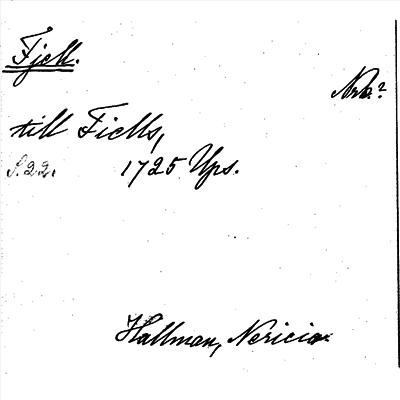 Fjell.
Nrb.?
till Fiells,
S. 22. 1725 Ups.
Hallman, Nericia